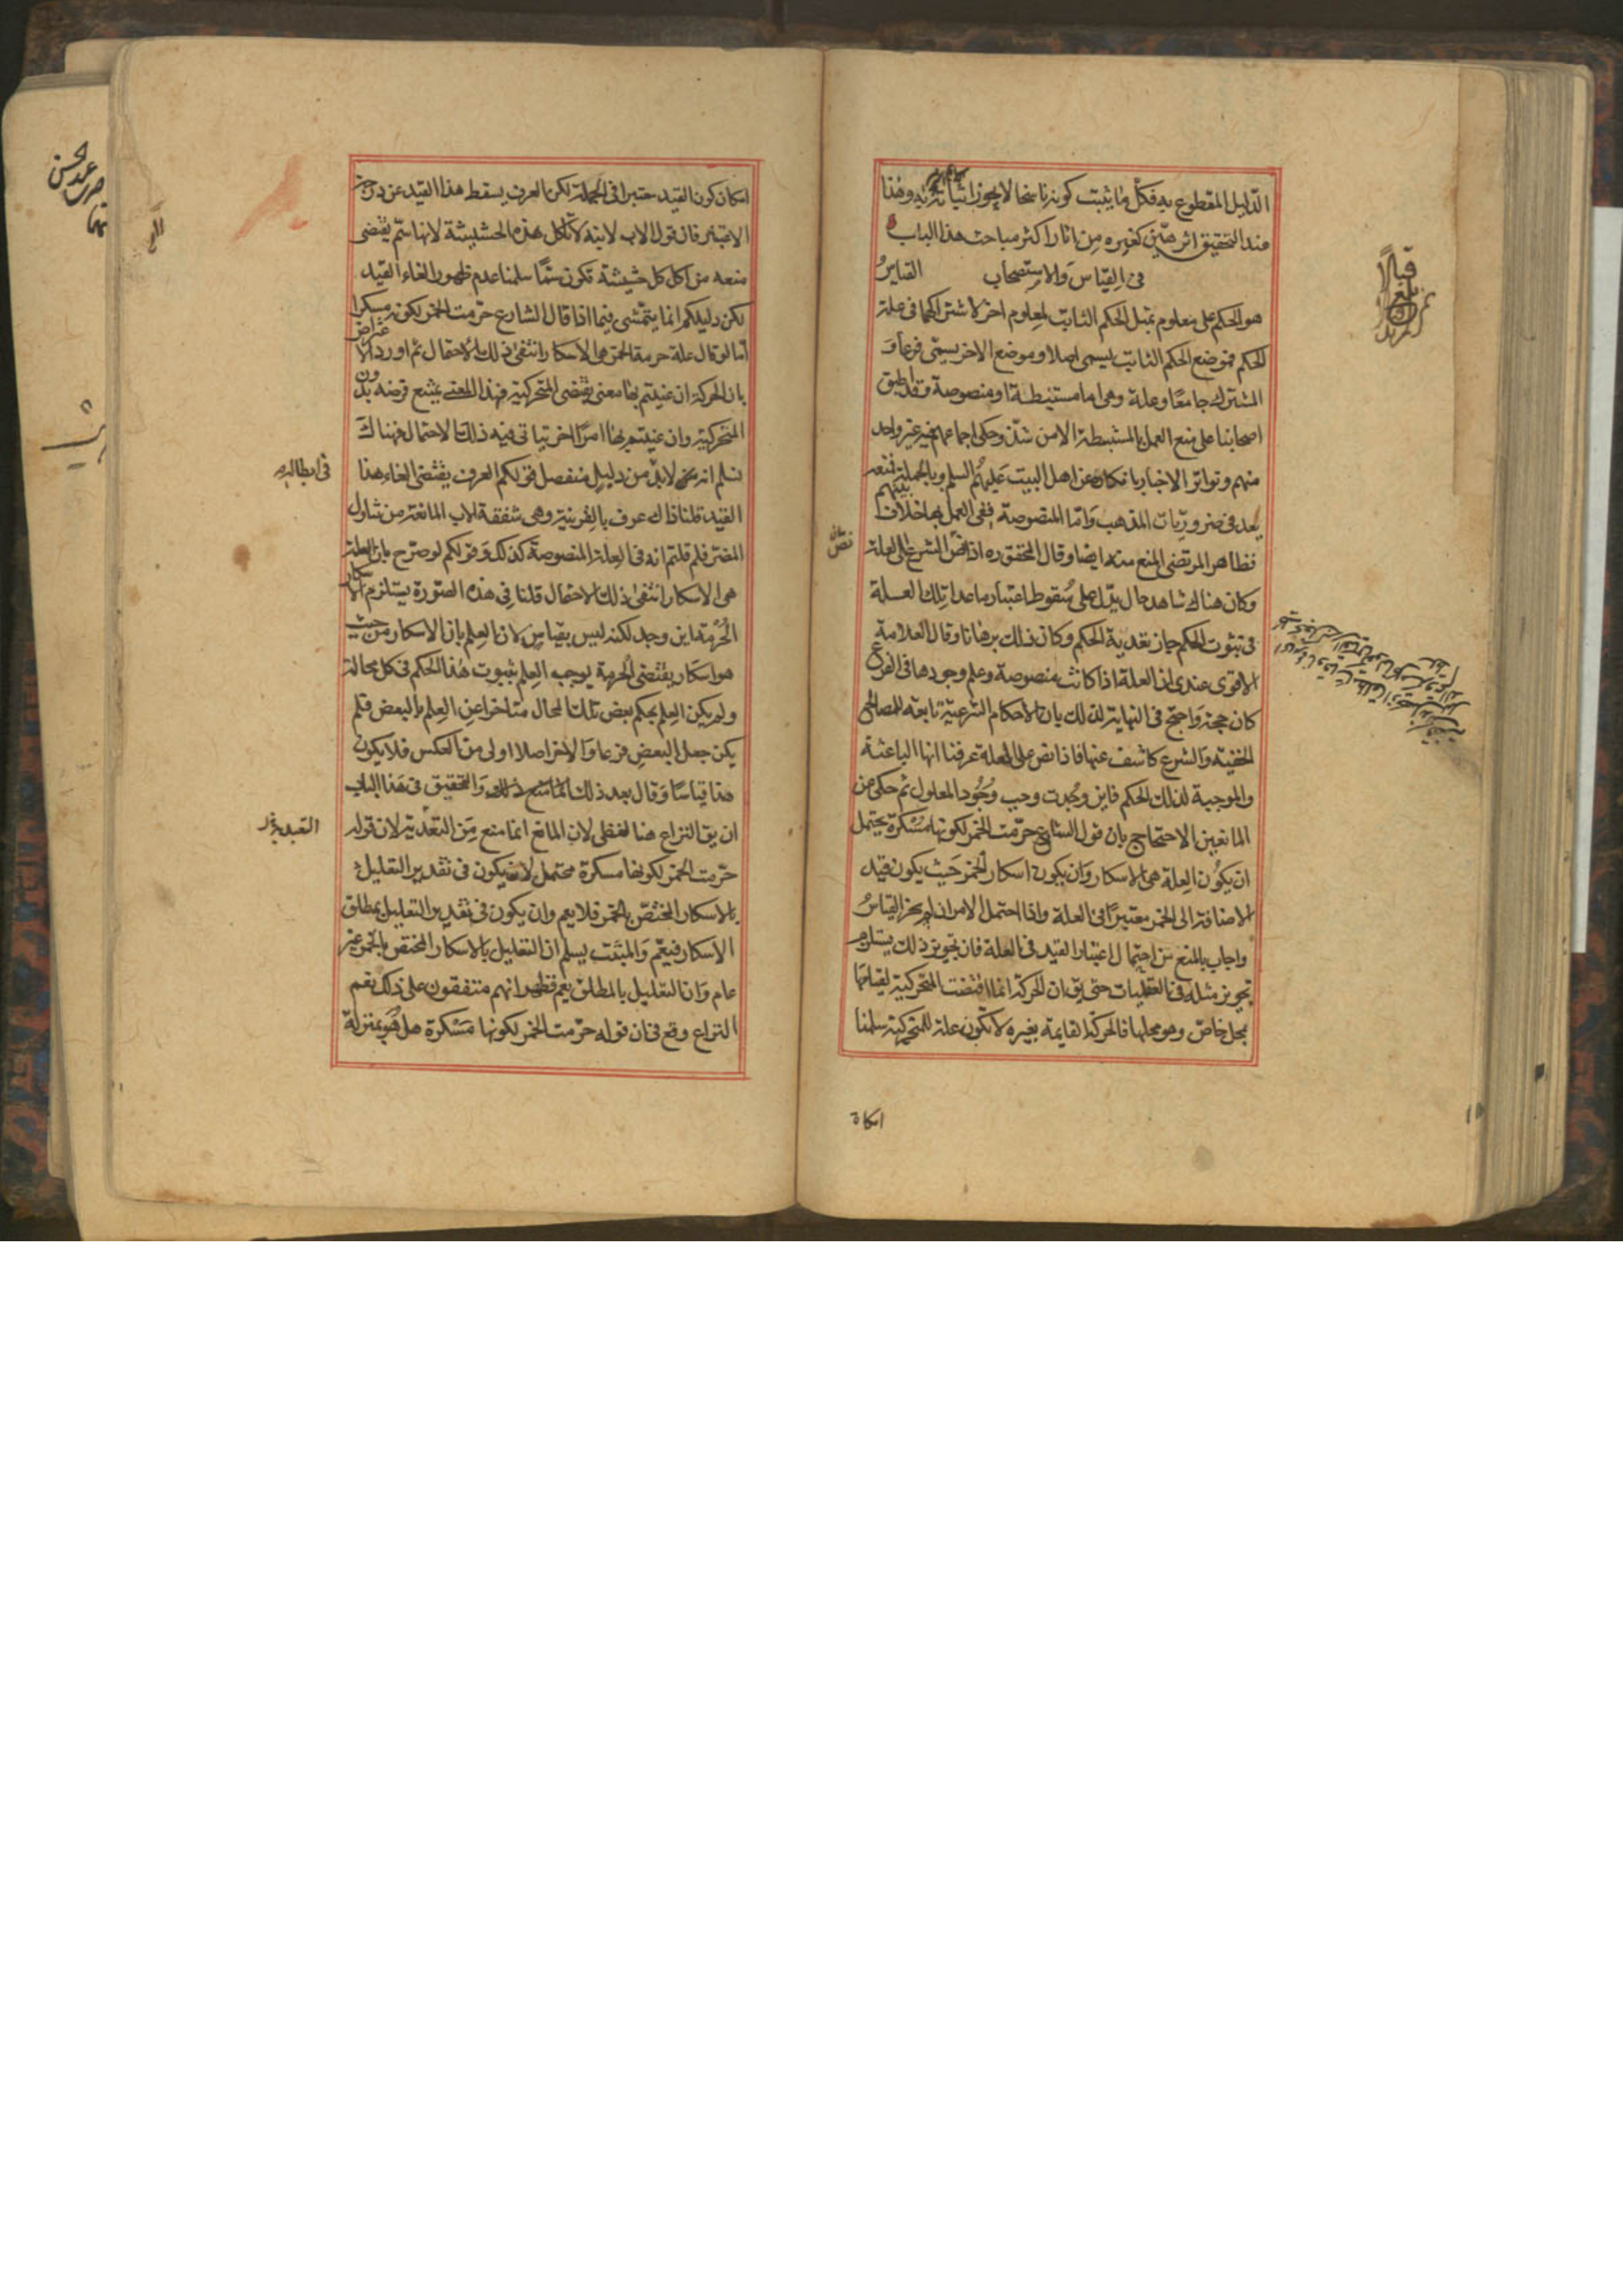 الدليل المقطوع به فكل ما يثبت كونه ناسخا لا يجوز اثباته وهذا
عند التحقيق اثر هين كغيره من اثار اكثر مباحث هذا الباب
فى القياس والاستصحاب القياس
هو الحكم على معلوم بمثل الحكم الثابت لمعلوم اخر لاشتراكهما فى علة
الحكم فموضع الحكم الثابت يسمى اصلا وموضع الاخر يسمى فرعا و
المشترك جامعا وعلة وهى اما مستنبطة او منصوصة وقد اطبق
اصحابنا على منع العمل بالمستنبطة الا من شذ وحكى اجماعهم فيه غير واحد
منهم وتواتر الاخبار بانكاره عن اهل البيت عليهم السلم وبالجملة فمنعه
يعد فى ضروريات المذهب واما المنصوصة ففى العمل بها خلاف بينهم
فظاهر المرتضى المنع منه ايضا وقال المحقق ره اذا نص الشرع على العلة
وكان هناك شاهد حال يدل على سقوط اعتبار ما عدا تلك العلة
فى ثبوت الحكم جاز تعدية الحكم وكان ذلك برهانا وقال العلامة
الاقوى عندى ان العلة اذا كانت منصوصة وعلم وجودها فى الفرع
كان حجة واحتج فى النهاية لذلك بان الاحكام الشرعية تابعة للمصالح
الخفية والشرع كاشف عنها فاذا نص على العلة عرفنا انها الباعثة
والموجبة لذلك الحكم فاين وجدت وجب وجود المعلول ثم حكى عن
المانعين الاحتجاج بان قول الشارع حرمت الخمر لكونها مسكرة يحتمل
ان يكون العلة هى الاسكار وان يكون اسكار الخمر حيث يكون قيد
الاضافة الى الخمر معتبرا فى العلة واذا احتمل الامران لم يجز القياس
واجاب بالمنع من احتمال اعتبار القيد فى العلة فان تجويز ذلك يستلزم
تجويز مثله فى العقليات حتى يق ان الحركة انما اقتضت المتحركية لقيامها
بمحل خاص وهو محلها فالحركة القايمة بغيره لا تكون علة للمتحركية سلمنا
امكان
امكان كون القيد معتبرا فى الجملة لكن العرف يسقط هذا القيد عن درجة
الاعتبار فان قول الاب لابنه لا تاكل هذه الحشيشة لانها سم يقتضى
منعه من اكل كل حشيشة تكون سما سلمنا عدم ظهور الغاء القيد
لكن دليلكم انما يتمشى فيما اذا قال الشارع حرمت الخمر لكونه مسكرا
اما لو قال علة حرمة الخمر هى الاسكار انتفى ذلك الاحتمال ثم اورد الاعتراض
بان الحركة ان عنيتم بها معنى يقتضى المتحركية فهذا المعنى يمتنع فرضه بدون
المتحركية وان عنيتم بها امرا اخر يتاتى فيه ذلك الاحتمال فهناك
نسلم انه لا بد من دليل منفصل قولكم العرف يقتضى الغاء هذا
القيد قلنا ذاك عرف بالقرينة وهى شفقة الاب المانعة من تناول
المضر فلم قلتم انه فى العلة المنصوصة كذلك قولكم لو صرح بان العلة
هى الاسكار انتفى ذلك الاحتمال قلنا فى هذه الصورة يستلزم الاسكار
الحرمة اين وجد لكنه ليس بقياس لان العلم بان الاسكار من حيث
هو اسكار يقتضى الحرمة يوجب العلم بثبوت هذا الحكم فى كل محاله
ولم يكن العلم بحكم بعض تلك المحال متاخرا عن العلم بالبعض فلم
يكن جعل البعض فرعا والاخر اصلا اولى من العكس فلا يكون
هذا قياسا وقال بعد ذلك والتحقيق فى هذا الباب
ان يق النزاع هنا لفظى لان المانع انما منع من التعدية لان قوله
حرمت الخمر لكونها مسكرة محتمل لان يكون فى تقدير التعليل
بالاسكار المختص بالخمر فلا يعم وان يكون فى تقدير التعليل بمطلق
الاسكار فيعم والمثبت يسلم ان التعليل بالاسكار المختص بالخمر غير
عام وان التعليل بالمطلق يعم فظهر انهم متفقون على ذلك نعم
النزاع وقع فى ان قوله حرمت الخمر لكونها مسكرة هل هو بمنزلة